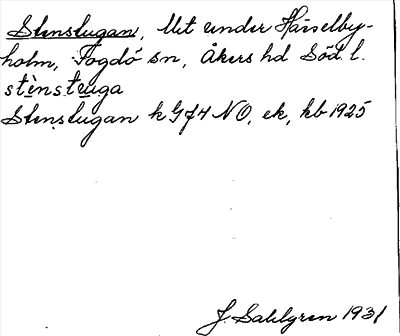 Stenstugan, Ut under Hässelby-
holm, Fogdö sn, Åkers hd Söd. l.
stènstu̠ga
Stenstugan k Gf4 NO, ek, kb 1925
J. Sahlgren 1931